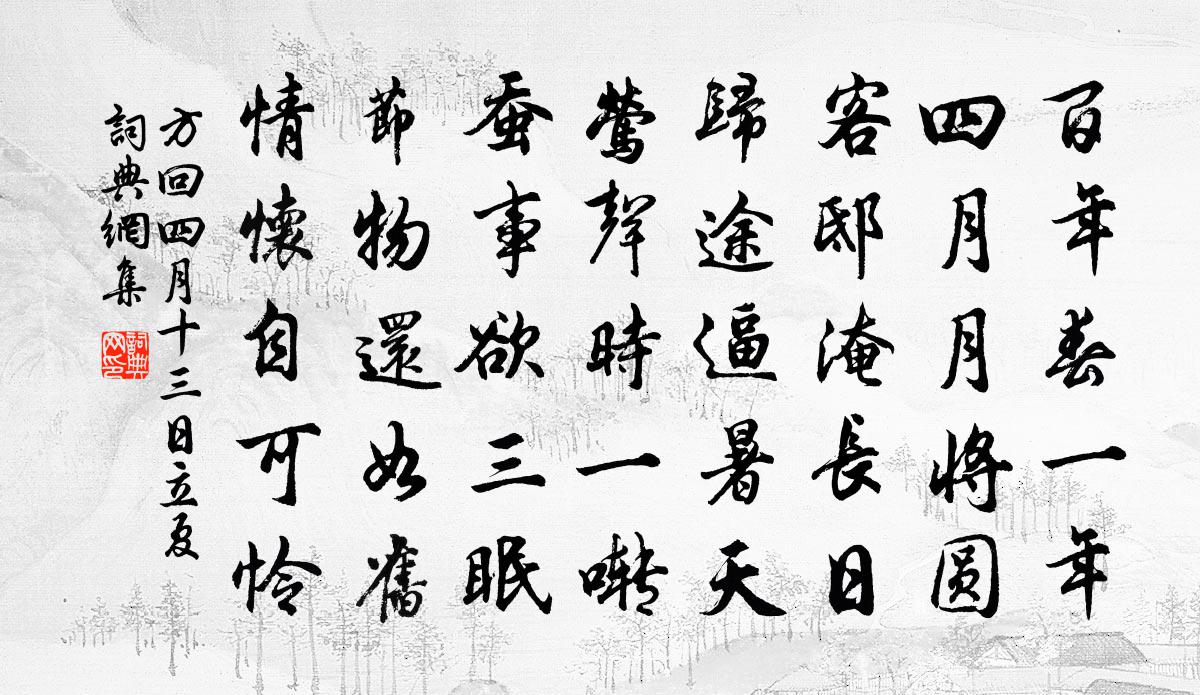 百年春一年
四月月将圆
客邸淹長日
歸途逼暑天
鶯聲時一囀
蚕事欲三眠
節物還如舊
情懷自可怜
方回四月十三日立夏
詞典網集
詞典网印